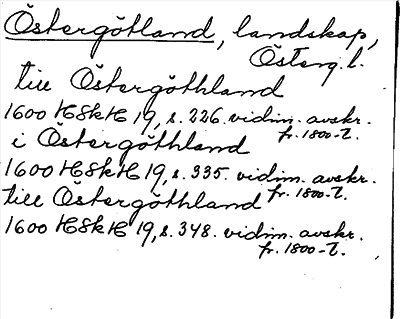 Östergötland, landskap,
Österg. l.
till Östergöthland
1600 HSkH 19, s. 226. vidim. avskr.
fr. 1800-t.
i Östergöthland
1600 HSkH 19, s. 335. vidim. avskr.
fr. 1800-t.
till Östergöthland
1600 HSkH 19, s. 348. vidim. avskr.
fr. 1800-t.